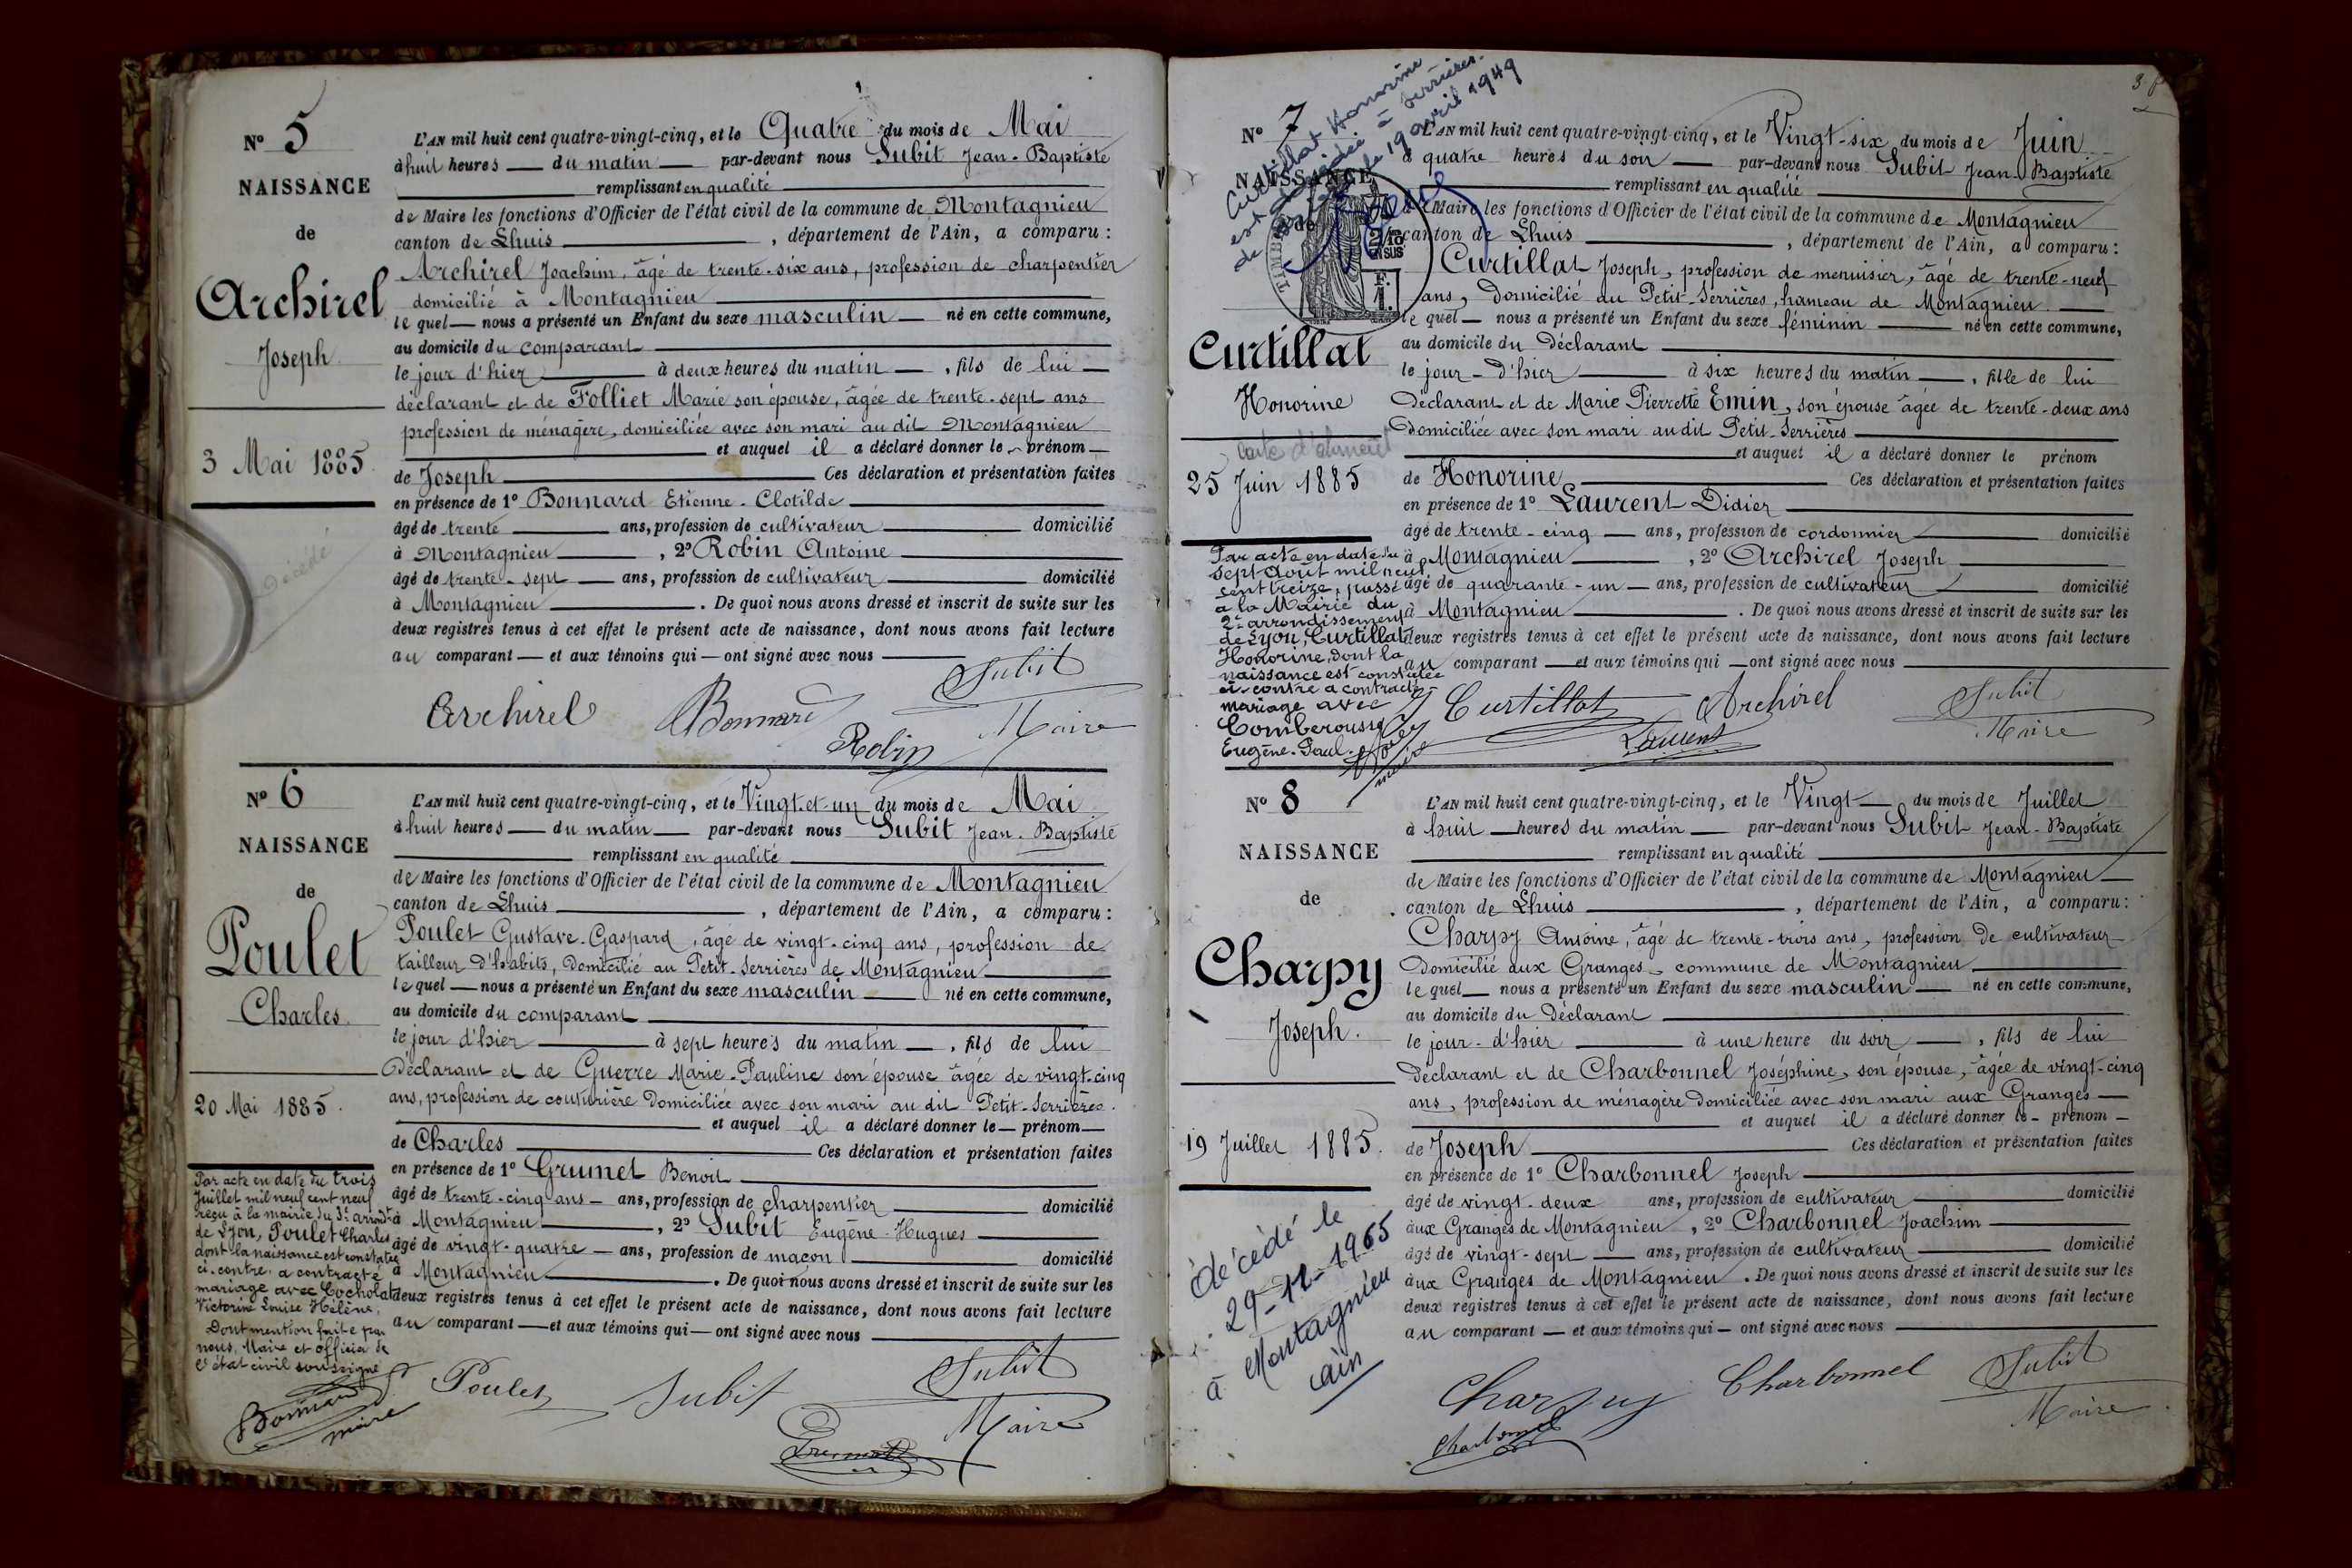 Nº 5
NAISSANCE
de
Archirel
Joseph
3 Mai 1885
Décédé
L'AN mil huit cent quatre-vingt-cinq, et le Quatre du mois de Mai
à huit heures du matin par-devant nous Subit Jean-Baptiste
remplissant en qualité
de Maire les fonctions d'Officier de l'état civil de la commune de Montagnieu
canton de Lhuis, département de l'Ain, a comparu :
Archirel Joachim, âgé de trente-six ans, profession de charpentier
domicilié à Montagnieu
le quel nous a présenté un Enfant du sexe masculin né en cette commune,
au domicile du comparant
le jour d'hier à deux heures du matin, fils de lui
déclarant et de Folliet Marie son épouse, âgée de trente-sept ans
profession de ménagère, domiciliée avec son mari au dit Montagnieu
et auquel il a déclaré donner le prénom
de Joseph Ces déclaration et présentation faites
en présence de 1º Bonnard Etienne-Clotilde
âgé de trente ans, profession de cultivateur domicilié
à Montagnieu, 2º Robin Antoine
âgé de trente-sept ans, profession de cultivateur domicilié
à Montagnieu. De quoi nous avons dressé et inscrit de suite sur les
deux registres tenus à cet effet le présent acte de naissance, dont nous avons fait lecture
au comparant et aux témoins qui ont signé avec nous
Archirel Bonnard Robin Subit
Maire
Nº 6
NAISSANCE
de
Poulet
Charles
20 Mai 1885.
Par acte en date du trois
Juillet mil neuf cent neuf
reçu à la mairie du 3e arrondt
de Lyon, Poulet Charles
dont la naissance est constatée
ci-contre, a contracté
mariage avec Cocholat
Victorine Louise Hélène,
Dont mention faite par
nous, Maire et officier de
l'état civil soussigné
Bonnard
maire
L'AN mil huit cent quatre-vingt-cinq, et le Vingt-et-un du mois de Mai
à huit heures du matin par-devant nous Subit Jean-Baptiste
remplissant en qualité
de Maire les fonctions d'Officier de l'état civil de la commune de Montagnieu
canton de Lhuis, département de l'Ain, a comparu :
Poulet Gustave-Gaspard, âgé de vingt-cinq ans, profession de
tailleur d'habits, Domicilié au Petit-Serrières de Montagnieu
le quel nous a présenté un Enfant du sexe masculin né en cette commune,
au domicile du comparant
le jour d'hier à sept heures du matin, fils de lui
Déclarant et de Guerre Marie-Pauline son épouse âgée de vingt-cinq
ans, profession de couturière Domiciliée avec son mari au dit Petit-Serrières.
et auquel il a déclaré donner le prénom
de Charles Ces déclaration et présentation faites
en présence de 1º Grumet Benoit
âgé de trente-cinq ans ans, profession de charpentier domicilié
à Montagnieu, 2º Subit Eugène-Hugues
âgé de vingt-quatre ans, profession de maçon domicilié
à Montagnieu. De quoi nous avons dressé et inscrit de suite sur les
deux registres tenus à cet effet le présent acte de naissance, dont nous avons fait lecture
au comparant et aux témoins qui ont signé avec nous
Poulet Subit Grumet Subit
Maire
Curtillat Honorine
est décédée à Serrières
de le 19 avril 1949
Nº 7
NAISSANCE
de
Curtillat
Honorine
25 Juin 1885
Par acte en date du
sept Août mil neuf
cent treize, passé
à la Mairie du
2e arrondissement
de Lyon, Curtillat
Honorine, dont la
naissance est constatée
ci-contre a contracté
mariage avec
Comberousse
Eugène-Paul.
maire
L'AN mil huit cent quatre-vingt-cinq, et le Vingt-six du mois de Juin
à quatre heures du soir par-devant nous Subit Jean-Baptiste
remplissant en qualité
de Maire les fonctions d'Officier de l'état civil de la commune de Montagnieu
canton de Lhuis, département de l'Ain, a comparu :
Curtillat Joseph, profession de menuisier, âgé de trente-neuf
ans, Domicilié au Petit-Serrières, hameau de Montagnieu
le quel nous a présenté un Enfant du sexe féminin né en cette commune,
au domicile du Déclarant
le jour d'hier à six heures du matin, fille de lui
Déclarant et de Marie Pierrette Emin, son épouse âgée de trente-deux ans
Domiciliée avec son mari au dit Petit-Serrières
et auquel il a déclaré donner le prénom
de Honorine Ces déclaration et présentation faites
en présence de 1º Laurent Didier
âgé de trente-cinq ans, profession de cordonnier domicilié
à Montagnieu, 2º Archirel Joseph
âgé de quarante-un ans, profession de cultivateur domicilié
à Montagnieu. De quoi nous avons dressé et inscrit de suite sur les
deux registres tenus à cet effet le présent acte de naissance, dont nous avons fait lecture
au comparant et aux témoins qui ont signé avec nous
Curtillat Laurent Archirel Subit
Maire
Nº 8
NAISSANCE
de
Charpy
Joseph.
19 Juillet 1885.
décédé le
29-11-1965
à Montagnieu
Ain
L'AN mil huit cent quatre-vingt-cinq, et le Vingt du mois de Juillet
à huit heures du matin par-devant nous Subit Jean-Baptiste
remplissant en qualité
de Maire les fonctions d'Officier de l'état civil de la commune de Montagnieu
canton de Lhuis, département de l'Ain, a comparu :
Charpy Antoine, âgé de trente-trois ans, profession De cultivateur
Domicilié aux Granges commune de Montagnieu
le quel nous a présenté un Enfant du sexe masculin né en cette commune,
au domicile du Déclarant
le jour d'hier à une heure du soir, fils de lui
Déclarant et de Charbonnel Joséphine, son épouse, âgée de vingt-cinq
ans, profession de ménagère Domiciliée avec son mari aux Granges
et auquel il a déclaré donner le prénom
de Joseph Ces déclaration et présentation faites
en présence de 1º Charbonnel Joseph
âgé de vingt-deux ans, profession de cultivateur domicilié
aux Granges de Montagnieu, 2º Charbonnel Joachim
âgé de vingt-sept ans, profession de cultivateur domicilié
aux Granges de Montagnieu. De quoi nous avons dressé et inscrit de suite sur les
deux registres tenus à cet effet le présent acte de naissance, dont nous avons fait lecture
au comparant et aux témoins qui ont signé avec nous
Charpy Charbonnel Charbonnel Subit
Maire